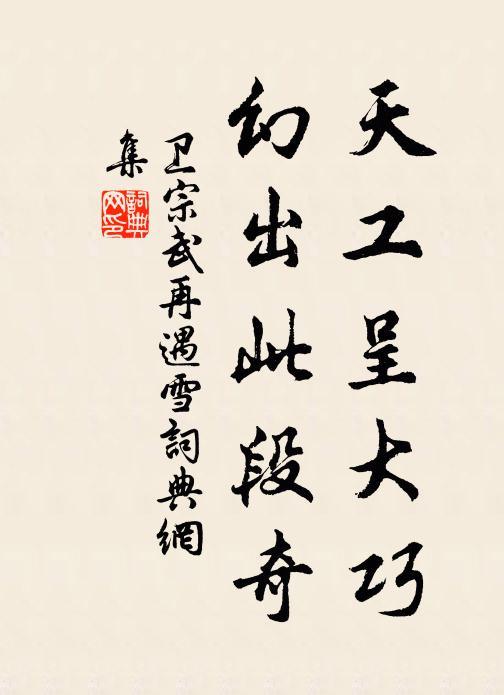 天工呈大巧
幻出此段奇
卫宗武再遇雪詞典網
集
詞典
网印